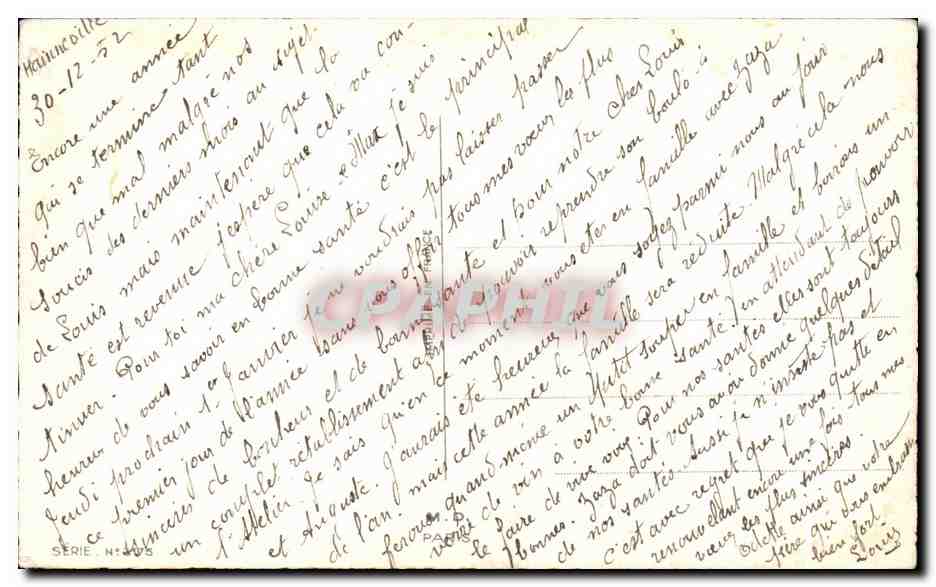 30-12-52
Encore une année
qui se termine tant
bien que mal malgré nos
soucis des derniers mois au sujet
de Louis mais maintenant que la
santé est revenue j'espère que cela va con-
tinuer. Pour toi ma chère Louise et Max je suis
heureux de vous savoir en bonne santé c'est le principal
Jeudi prochain 1er Janvier je ne voudrais pas laisser passer
ce premier jour de l'année sans vous offrir tous mes voeux les plus
sincères de bonheur et de bonne santé et pour notre cher Louis
un complet rétablissement afin de pouvoir reprendre son boulo à
l'Atelier. Je sais qu'en ce moment vous êtes en famille avec Zaza
et Auguste. J'aurais été heureux que vous soyez parmi nous au jour
de l'an mais cette année la famille sera réduite. Malgré cela nous
ferons quand même un petit souper en famille et boirons un
verre de vin à votre bonne santé, en attendant de pouvoir
le faire de vive voix. Pour nos santés elles sont toujours
bonnes. Zaza doit vous avoir donné quelques détail
de nos santés aussi je n'insiste pas et
c'est avec regret que je vous quitte en
renouvelant encore une fois tous mes
voeux les plus sincères.
Odette ainsi que votre
frère qui vous embrasse
bien fort.
Louis
IMPRIMÉ EN FRANCE
CPAPHIL
PARIS
SERIE. N°